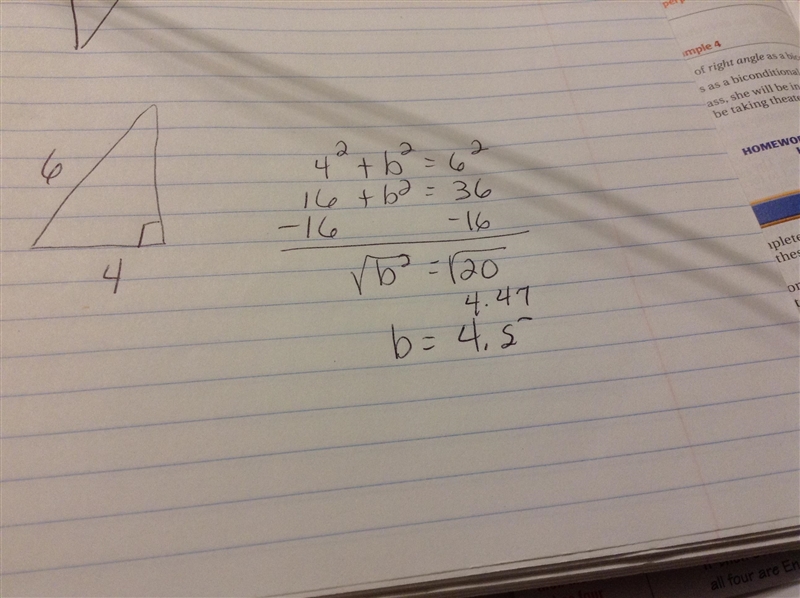 6
4
4² + b² = 6²
16 + b² = 36
-16 -16
√b² = √20
4.47
b = 4.5
mple 4
of right angle as a bic
s as a biconditional
ass, she will be in
be taking theate
HOMEWOR
plete
thes
or
all four are En